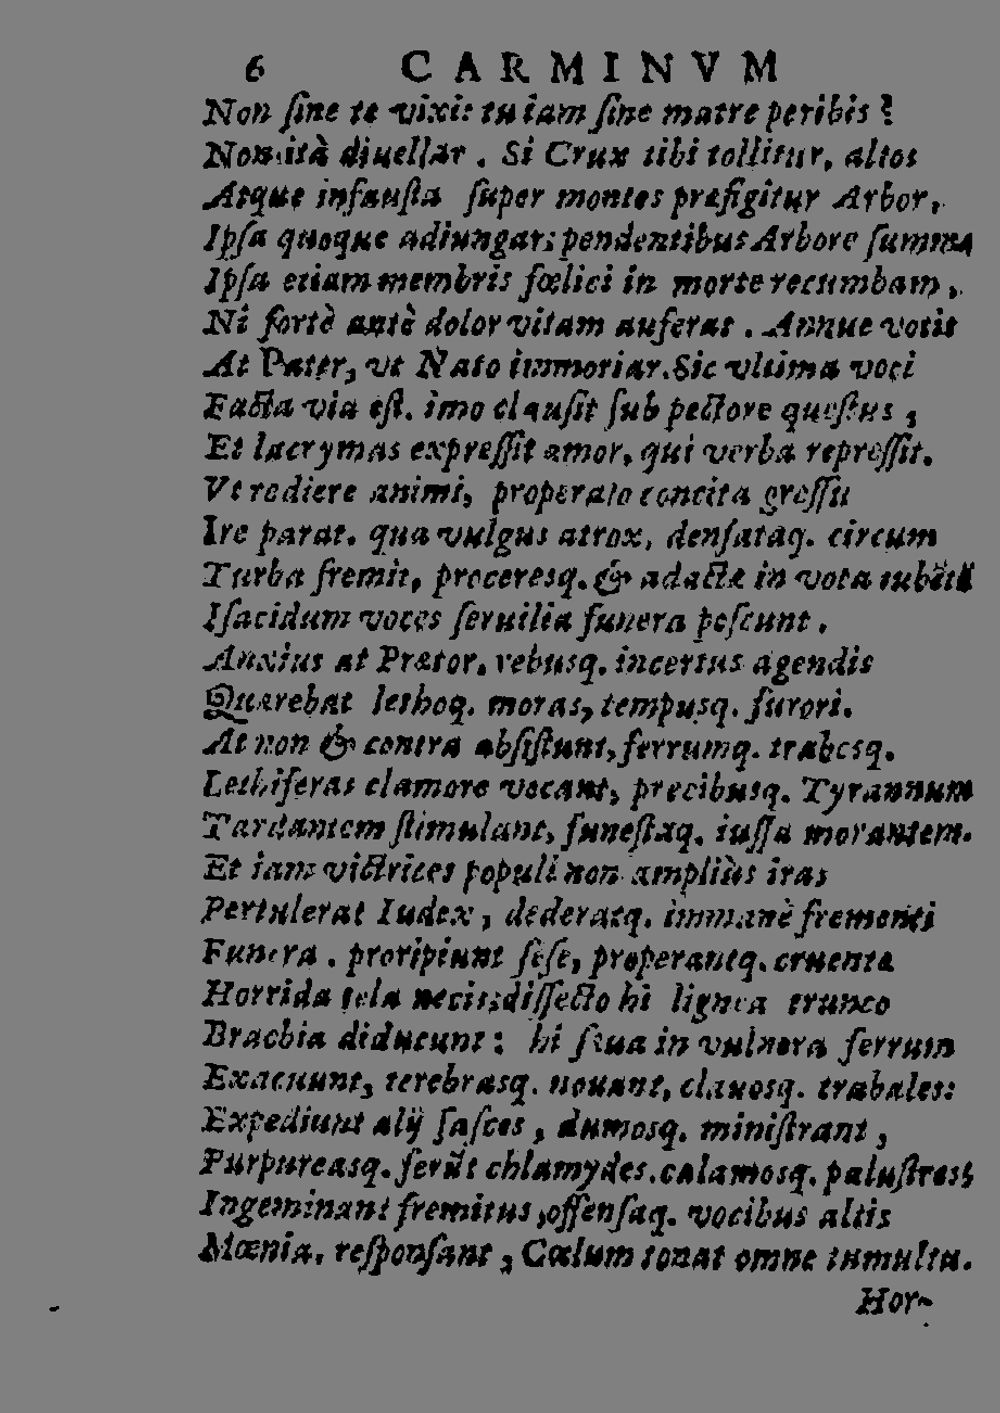 6 CARMINVM
Non ſine te vixi: tu iam ſine matre peribis?
Non ità diuellar. Si Crux tibi tollitur, altos
Atque infauſta ſuper montes præfigitur Arbor,
Ipſa quoque adiungar: pendentibus Arbore ſumma
Ipſa etiam membris fœlici in morte recumbam,
Ni fortè antè dolor vitam auferat. Annue votis
At Pater, vt Nato immoriar. Sic vltima voci
Facta via eſt. imo clauſit ſub pectore queſtus,
Et lacrymas expreſſit amor, qui verba repreſſit.
Vt rediere animi, properato concita greſſu
Ire parat. qua vulgus atrox, denſataq. circum
Turba fremit, proceresq. & adactæ in vota iubẽtũ
Iſacidum voces ſeruilia funera poſcunt.
Anxius at Prætor. rebusq. incertus agendis
Quærebat lethoq. moras, tempusq. furori.
At non & contra abſiſtunt, ferrumq. trabesq.
Lethiferas clamore vocant, precibusq. Tyrannum
Tardantem ſtimulant, funeſtaq. iuſſa morantem.
Et iam victrices populi non ampliùs iras
Pertulerat Iudex, dederatq. immanè frementi
Funera. proripiunt ſeſe, properantq. cruenta
Horrida tela necis; diſſecto hi lignea trunco
Brachia diducunt: hi ſæua in vulnera ferrum
Exacuunt, terebrasq. nouant, clauosq. trabales:
Expediunt alij faſces, dumosq. miniſtrant,
Purpureasq. ferũt chlamydes. calamosq. paluſtres;
Ingeminant fremitus, offenſaq. vocibus altis
Mœnia. reſponſant, Cœlum tonat omne tumultu.
Hor-